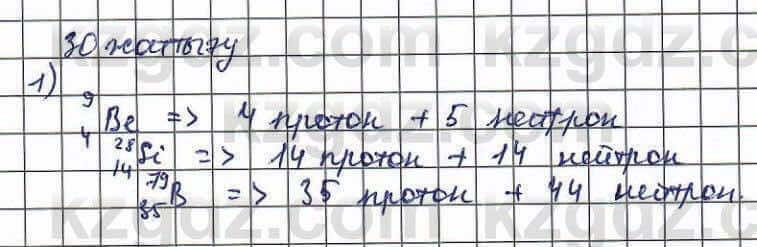 30 жаттығу
1) ⁹₄Be => 4 протон + 5 нейтрон
²⁸₁₄Si => 14 протон + 14 нейтрон
⁷⁹₃₅B => 35 протон + 44 нейтрон.
kzgdz.com kzgdz.com